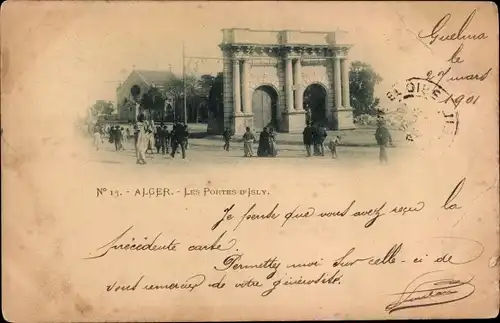 Guelma
le
29 mars
1901
Nº 15. - ALGER. - LES PORTES D'ISLY.
Je pense que vous avez reçu la
précédente carte.
Permettez moi sur celle-ci de
vous remercier de votre générosité.